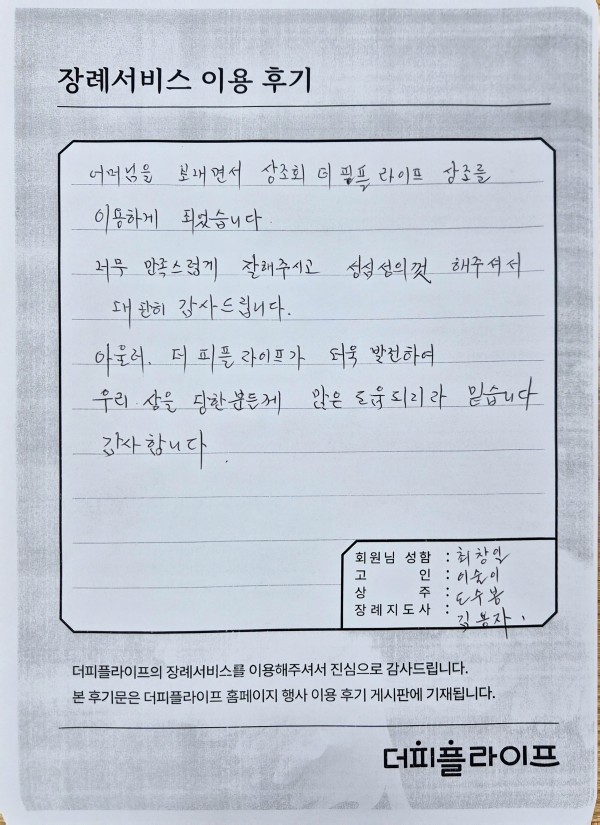 장례서비스 이용 후기
어머님을 보내면서 상조회 더 피플 라이프 상조를
이용하게 되었습니다
너무 만족스럽게 잘해주시고 성심성의껏 해주셔서
대단히 감사드립니다.
아울러. 더 피플 라이프가 더욱 발전하여
우리 상을 당한분들게 많은 도움되리라 믿습니다
감사합니다.
회원님 성함 : 최창일
고 인 : 이순이
상 주 : 도수봉
장례지도사 : 김봉자.
더피플라이프의 장례서비스를 이용해주셔서 진심으로 감사드립니다.
본 후기문은 더피플라이프 홈페이지 행사 이용 후기 게시판에 기재됩니다.
더피플라이프